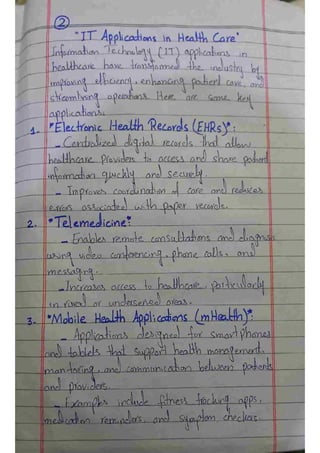 2
"IT Applications in Health Care"
Information Technology (IT) applications in
healthcare have transformed the industry by
improving efficiency, enhancing patient care, and
streamlining operations. Here are some key
applications.
1. *Electronic Health Records (EHRs)*:
- Centralized digital records that allow
healthcare providers to access and share patient
information quickly and securely.
- Improves coordination of care and reduces
errors associated with paper records.
2. *Telemedicine:
- Enables remote consultations and diagnosis
using video conferencing, phone calls, and
messaging.
- Increases access to healthcare, particularly
in rural or underserved areas.
3. *Mobile Health Applications (mHealth)*:
- Applications designed for smartphones
and tablets that support health management,
monitoring, and communication between patients
and providers.
- Examples include fitness tracking apps,
medication reminders, and symptom checkers.